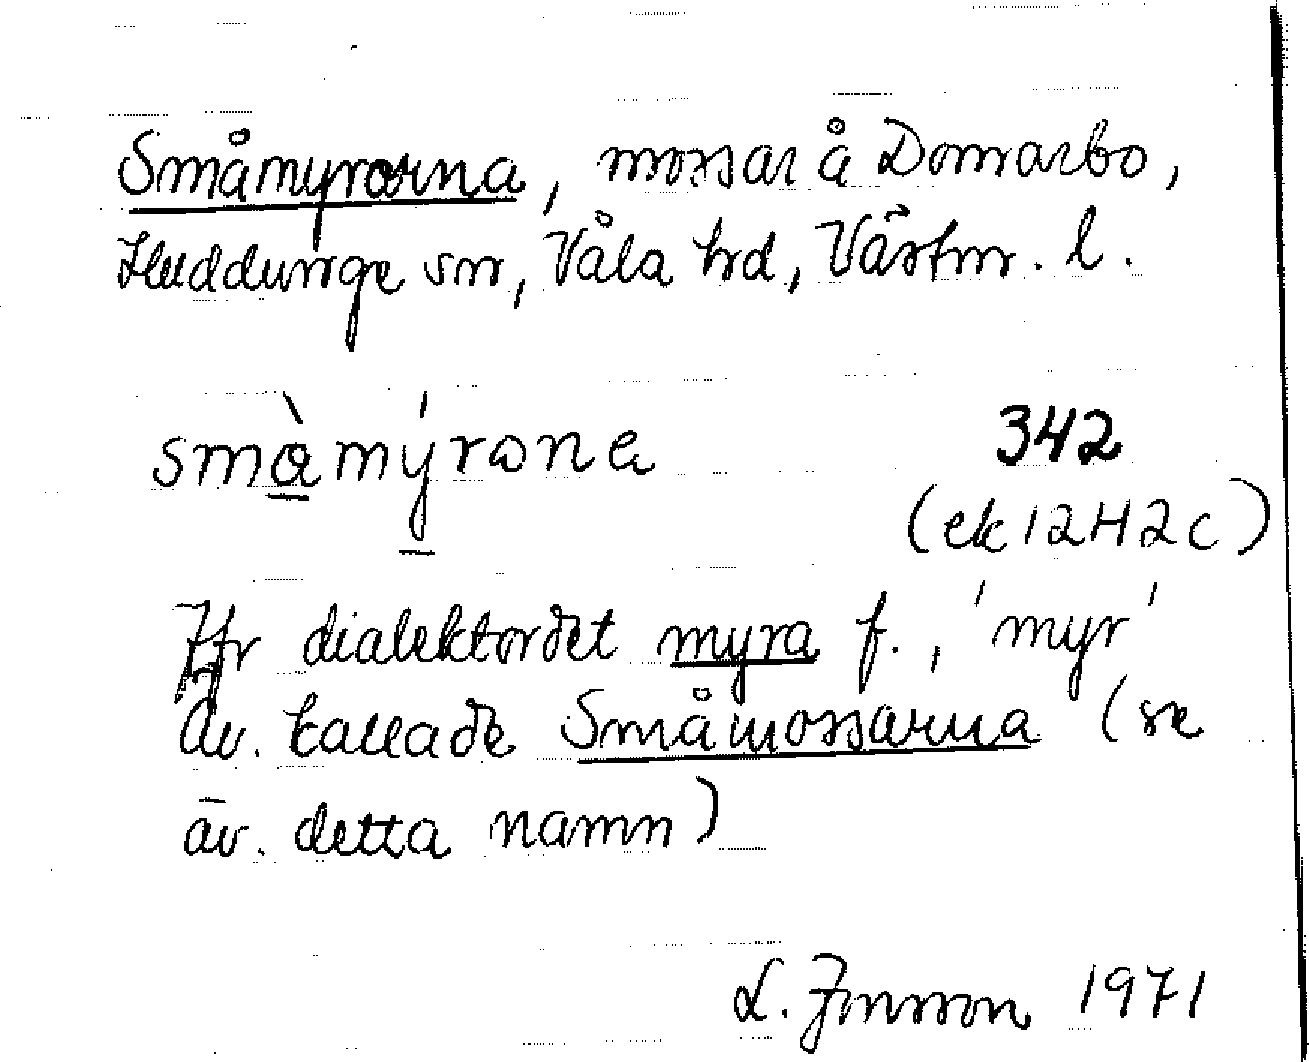 Småmyrorna, mossar å Domarbo,
Huddunge sn, Våla hd, Västm. l.
smàmýrona 342
(ek 12H2c)
Jfr dialektordet myra f., 'myr'
Äv. kallade Småmossarna (se
äv. detta namn)
L. Jonsson 1971